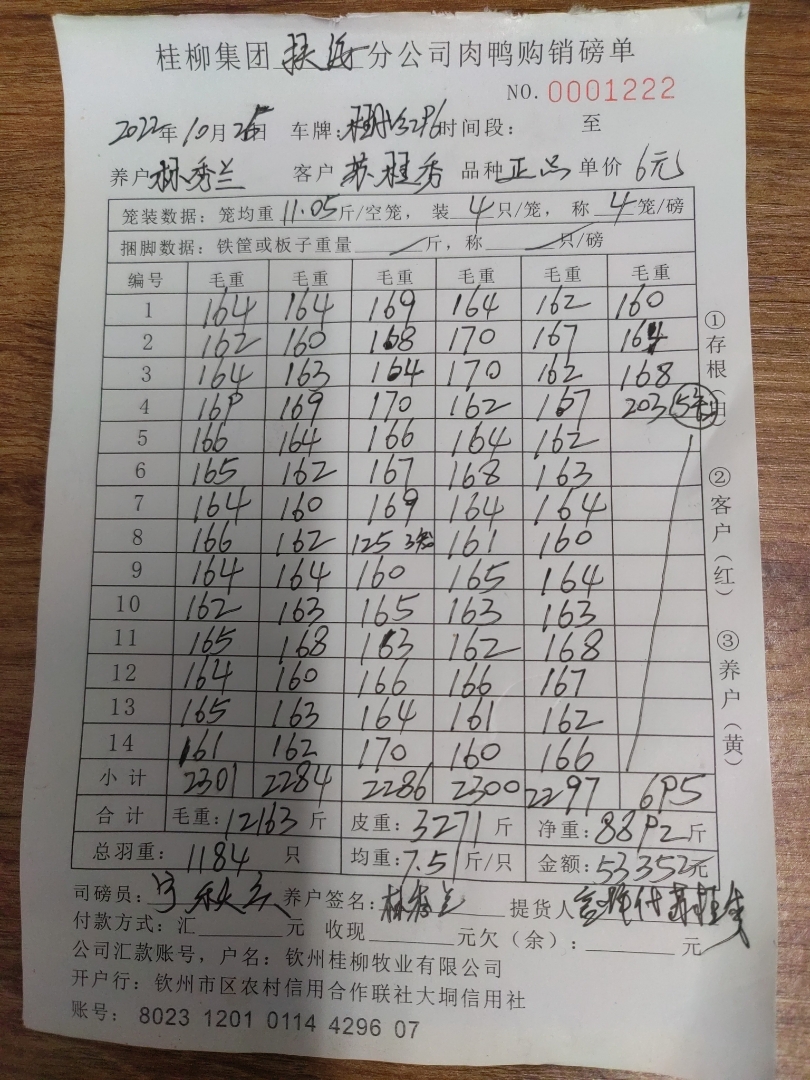 桂柳集团扶海分公司肉鸭购销磅单
NO. 0001222
2022年10月25日 车牌: 时间段: 至
养户林秀兰 客户苏桂秀 品种正品 单价6元
笼装数据: 笼均重11.05斤/空笼, 装4只/笼, 称4笼/磅
捆脚数据: 铁筐或板子重量 斤, 称 只/磅
编号 毛重 毛重 毛重 毛重 毛重 毛重
1 164 164 169 164 162 160
2 162 160 168 170 167 164
3 164 163 164 170 162 168
4 169 169 170 162 167 203 5笼
5 166 164 166 164 162
6 165 162 167 168 163
7 164 160 169 164 164
8 166 162 125 3笼 161 160
9 164 164 160 165 164
10 162 163 165 163 163
11 165 168 163 162 168
12 164 160 166 166 167
13 165 163 164 161 162
14 161 162 170 160 166
小计 2301 2284 2286 2300 2297 695
合计 毛重: 12163斤 皮重: 3271斤 净重: 8892斤
总羽重: 1184只 均重: 7.51斤/只 金额: 53352元
司磅员: 养户签名: 林秀兰 提货人
付款方式: 汇 元 收现 元欠(余): 元
公司汇款账号, 户名: 钦州桂柳牧业有限公司
开户行: 钦州市区农村信用合作联社大垌信用社
账号: 8023 1201 0114 4296 07
①存根(白) ②客户(红) ③养户(黄)